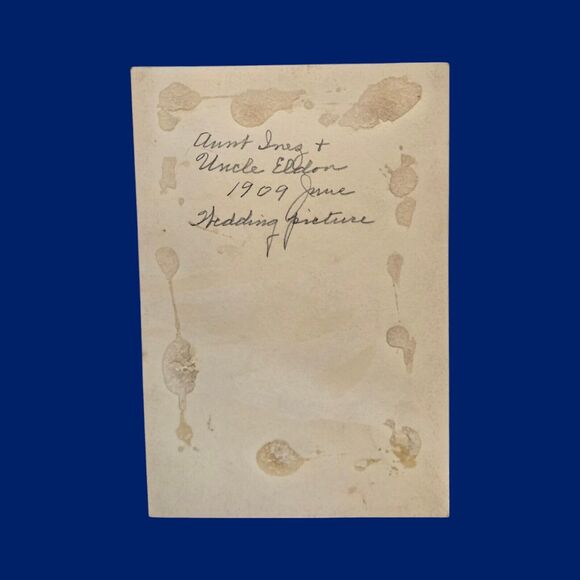 Aunt Inez +
Uncle Eldon
1909 June
Wedding picture